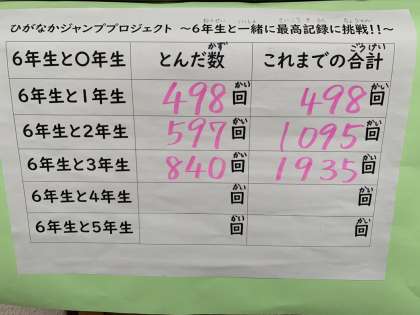 ひがなかジャンププロジェクト ～6年生と一緒に最高記録に挑戦!!～
6年生と〇年生 とんだ数 これまでの合計
6年生と1年生 498回 498回
6年生と2年生 597回 1095回
6年生と3年生 840回 1935回
6年生と4年生 回 回
6年生と5年生 回 回